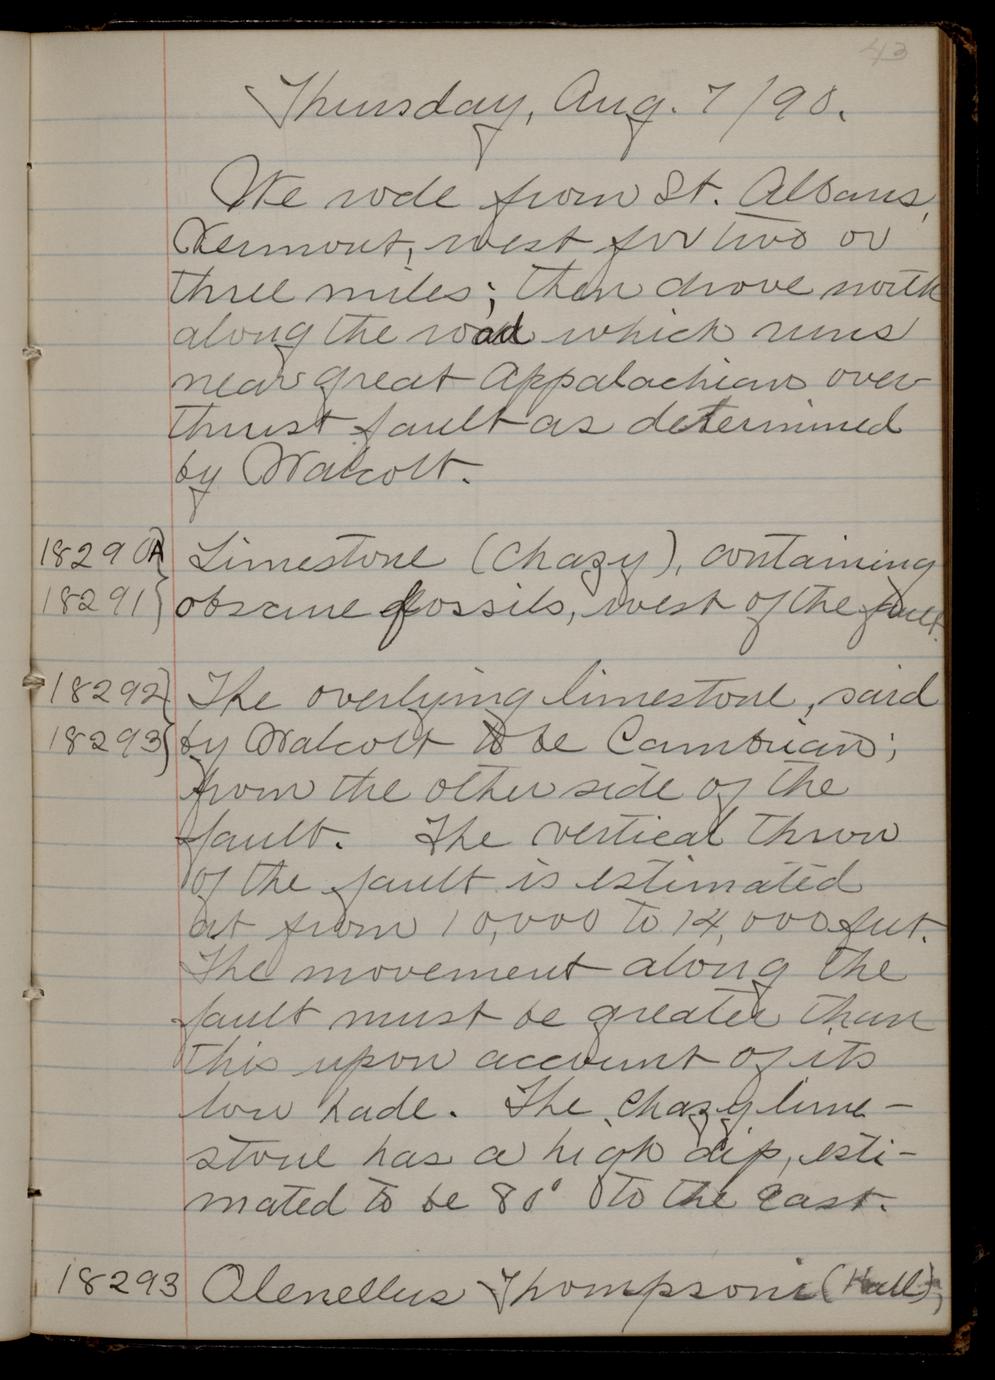 43
Thursday, Aug. 7/90.
We rode from St. Albans,
Vermont, west for two or
three miles; then drove north
along the road which runs
near great Appalachian over
thrust fault as determined
by Walcott.
18290A} Limestone (Chazy), containing
18291} obscure fossils, west of the fault.
18292} The overlying limestone, said
18293} by Walcott to be Cambrian;
from the other side of the
fault. The vertical throw
of the fault is estimated
at from 10,000 to 14,000 feet.
The movement along the
fault must be greater than
this upon account of its
low hade. The Chazy lime-
stone has a high dip, esti-
mated to be 80° to the east.
18293 Olenellus Thompsoni (Hall),